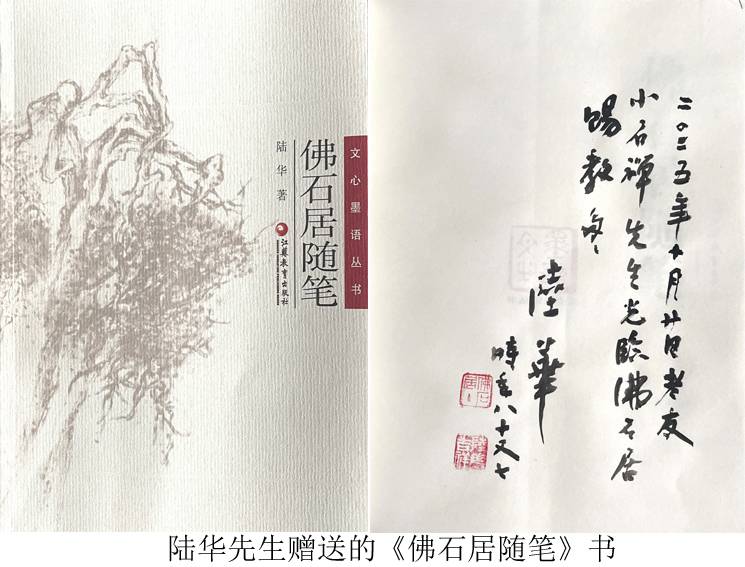 文心墨语丛书
佛石居随笔
陆华 著
江苏教育出版社
二〇二五年十月廿日老友
小石禅先生光临佛石居
赐教多多
陆华
时年八十又七
佛石居
陆华先生赠送的《佛石居随笔》书